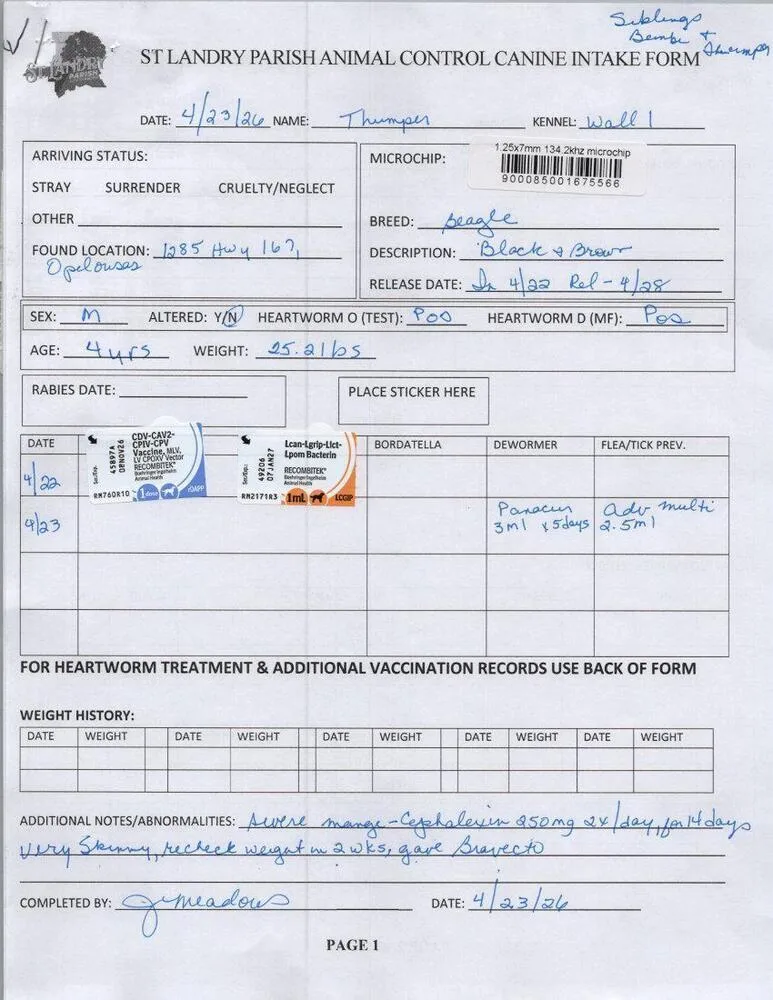 Siblings
Bembi + Thumper
ST LANDRY
PARISH
ST LANDRY PARISH ANIMAL CONTROL CANINE INTAKE FORM
DATE: 4/23/26 NAME: Thumper KENNEL: Wall 1
ARRIVING STATUS:
STRAY SURRENDER CRUELTY/NEGLECT
OTHER
FOUND LOCATION: 1285 Hwy 167,
Opelousas
MICROCHIP:
1.25x7mm 134.2khz microchip
900085001675566
BREED: Beagle
DESCRIPTION: Black & Brown
RELEASE DATE: In 4/22 Rel - 4/28
SEX: M ALTERED: Y/N HEARTWORM O (TEST): Pos HEARTWORM D (MF): Pos
AGE: 4 yrs WEIGHT: 25.2 lbs
RABIES DATE: PLACE STICKER HERE
DATE BORDATELLA DEWORMER FLEA/TICK PREV.
4/22
CDV-CAV2-
CPIV-CPV
Vaccine, MLV,
LV CPOXV Vector
RECOMBITEK®
Boehringer Ingelheim
Animal Health
Ser/Exp.
45897A
08NOV26
RM760R10 1 dose rDAPP
Lcan-Lgrip-Lict-
Lpom Bacterin
RECOMBITEK®
Boehringer Ingelheim
Animal Health
Ser/Exp.
49206
07JAN27
RM2171R3 1mL LCGIP
4/23 Panacur Adv multi
3ml x 5days 2.5ml
FOR HEARTWORM TREATMENT & ADDITIONAL VACCINATION RECORDS USE BACK OF FORM
WEIGHT HISTORY:
DATE WEIGHT DATE WEIGHT DATE WEIGHT DATE WEIGHT DATE WEIGHT
ADDITIONAL NOTES/ABNORMALITIES: Severe mange - Cephalexin 250mg 2x/day, for 14 days
very skinny, recheck weight in 2 wks, gave Bravecto
COMPLETED BY: J Meadows DATE: 4/23/26
PAGE 1